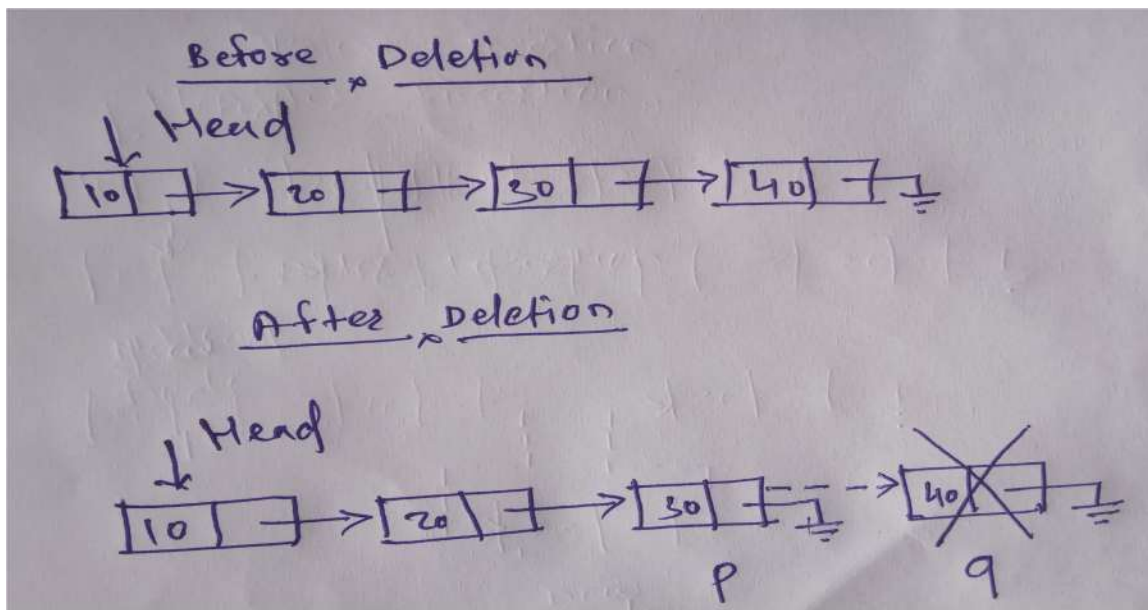 Before Deletion
Head
10 20 30 40
After Deletion
Head
10 20 30 40
P q